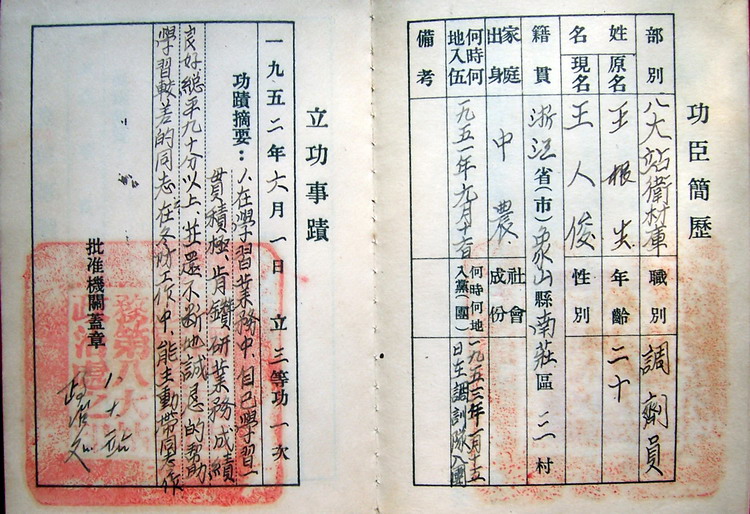 功臣簡歷
部別 八大站衛材庫 職別 調劑員
姓名 原名 王根生 年齡 二十
現名 王人俊 性別
籍貫 浙江省(市)象山縣南莊區 三村
家庭出身 中農 社會成份
何時何地入伍 一九五一年九月十六日 何時何地入黨(團) 一九五三年一月十五日在調劑版入團
備考
立功事蹟
一九五二年六月一日 立三等功一次
功蹟摘要:
1、在學習業務中、自己學習一
貫積極、肯鑽研業務成績
良好總平九十分以上、並還不斷地誠恳的幫助
學習較差的同志、在
工作中能主動帶同志作
批准機關蓋章
八大站
政治處